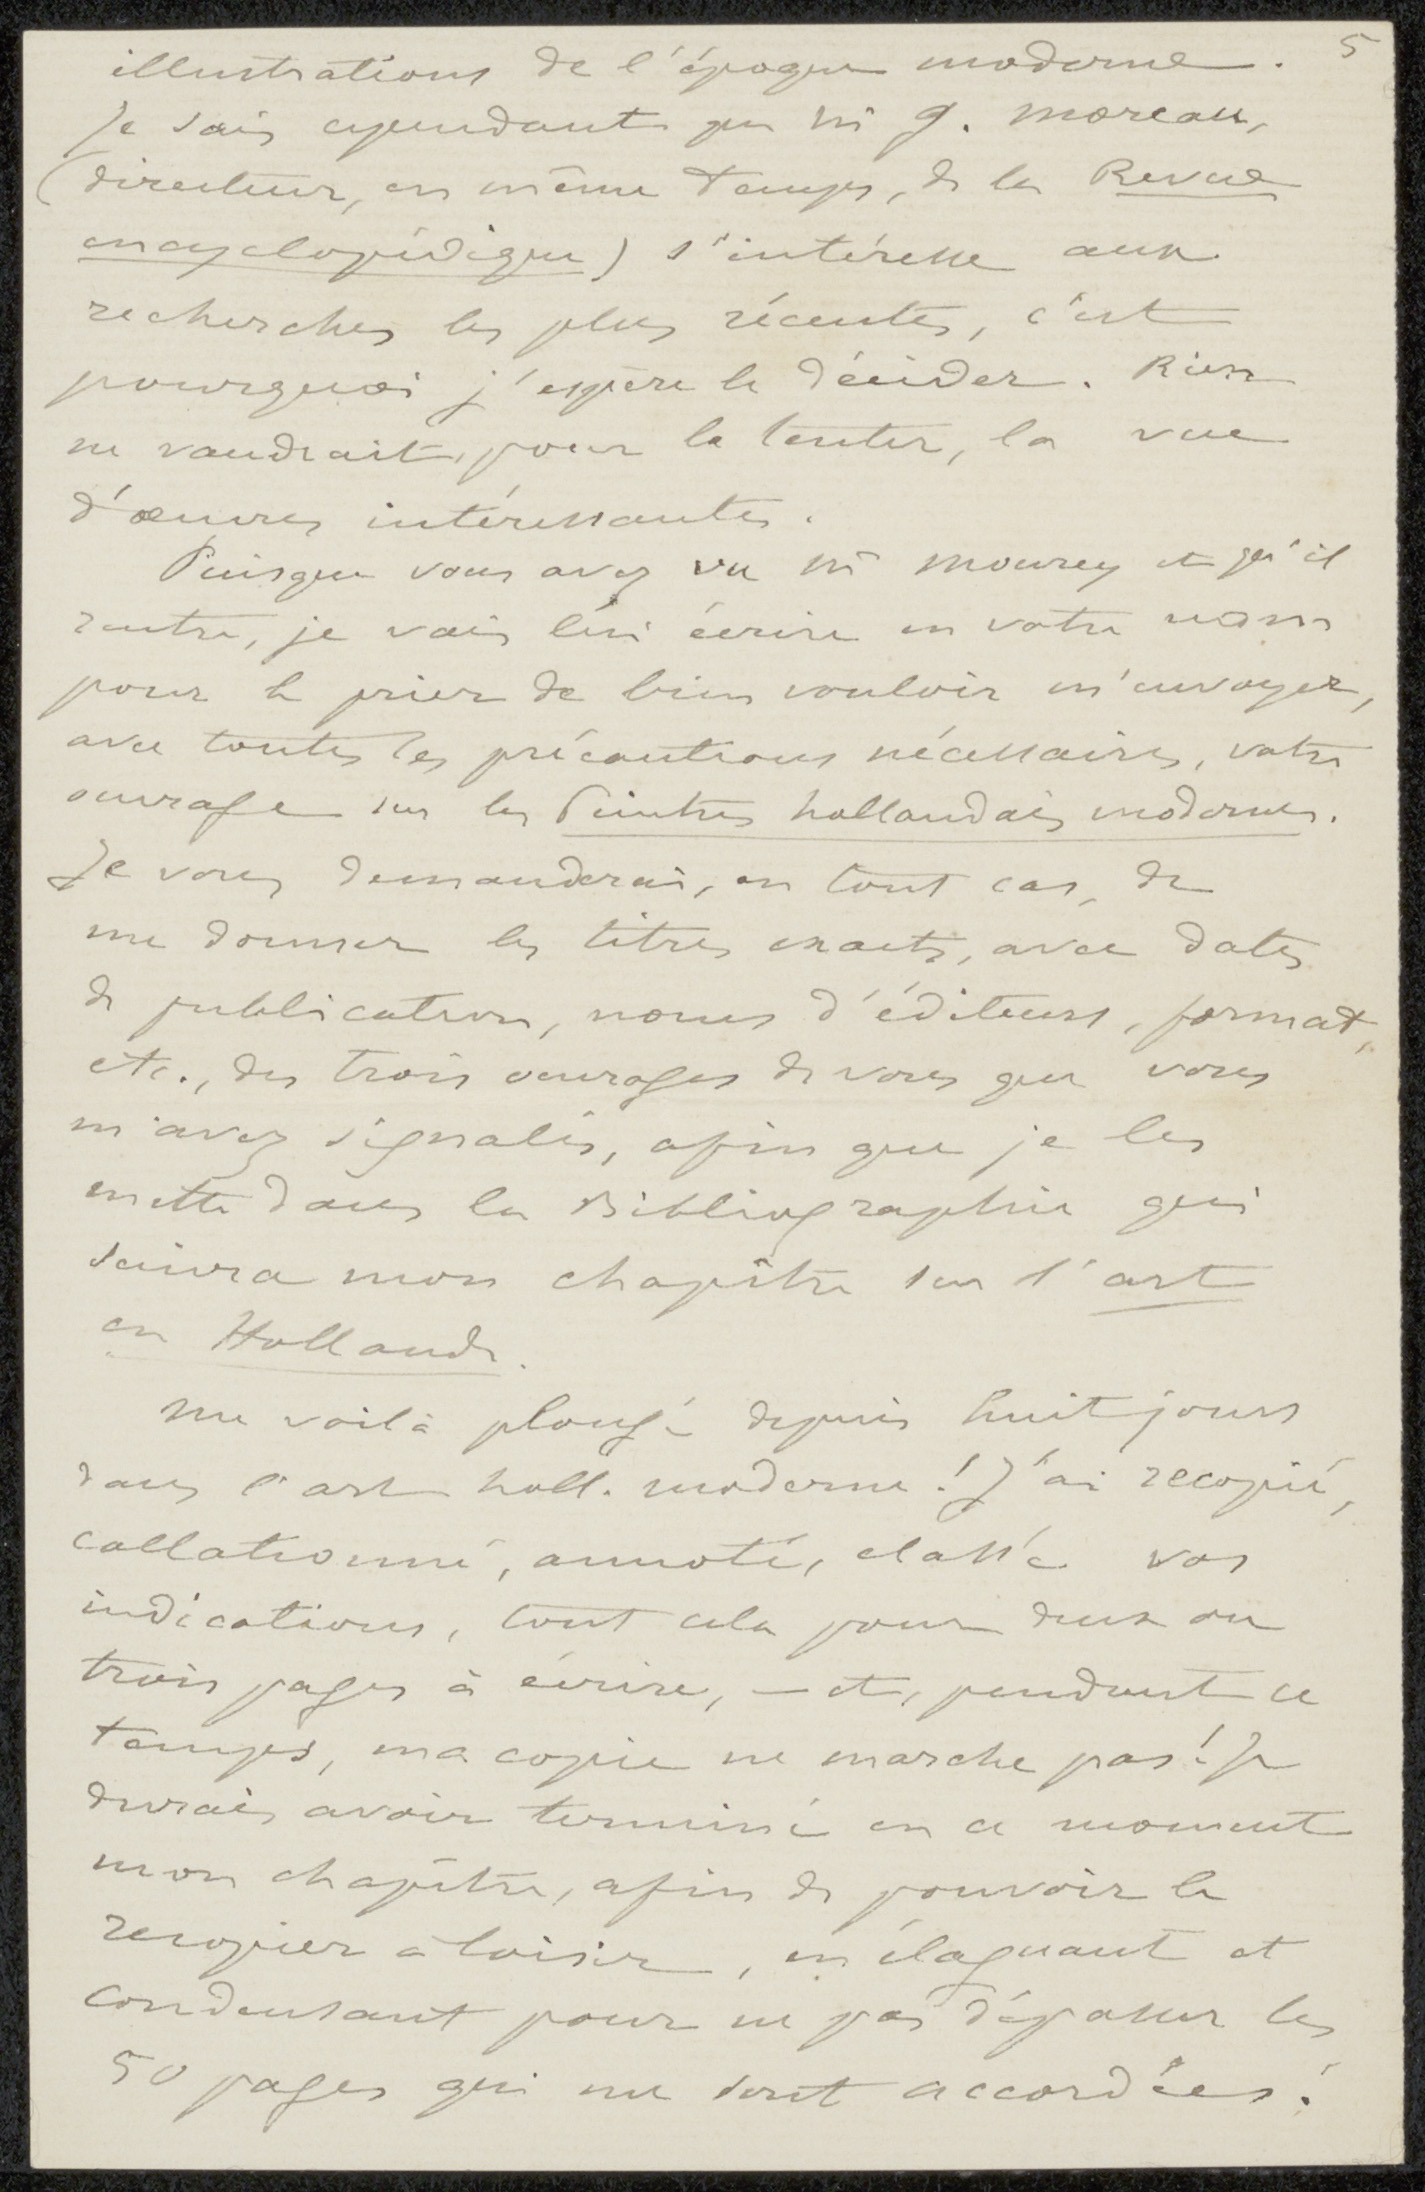 5
illustrations de l'époque moderne.
Je sais cependant que Mr G. Moreau,
(directeur, en même temps, de la Revue
encyclopédique) s'intéresse aux
recherches les plus récentes, c'est
pourquoi j'espère le décider. Rien
ne vaudrait, pour le tenter, la vue
d'œuvres intéressantes.
Puisque vous avez vu Mr Mourey et qu'il
rentre, je vais lui écrire en votre nom
pour le prier de bien vouloir m'envoyer,
avec toutes les précautions nécessaires, votre
ouvrage sur les Peintres hollandais modernes.
Je vous demanderai, en tout cas, de
me donner les titres exacts, avec dates
de publication, noms d'éditeurs, format,
etc., des trois ouvrages de vous que vous
m'avez signalés, afin que je les
mette dans la Bibliographie qui
suivra mon chapître sur l'art
en Hollande.
Me voilà plongé depuis huit jours
dans l'art holl. moderne! J'ai recopié,
collationné, annoté, classé vos
indications, tout cela pour deux ou
trois pages à écrire, — et, pendant ce
temps, ma copie ne marche pas! Je
devrais avoir terminé en ce moment
mon chapître, afin de pouvoir le
recopier à loisir, en élaguant et
condensant pour ne pas dépasser les
50 pages qui me sont accordées!